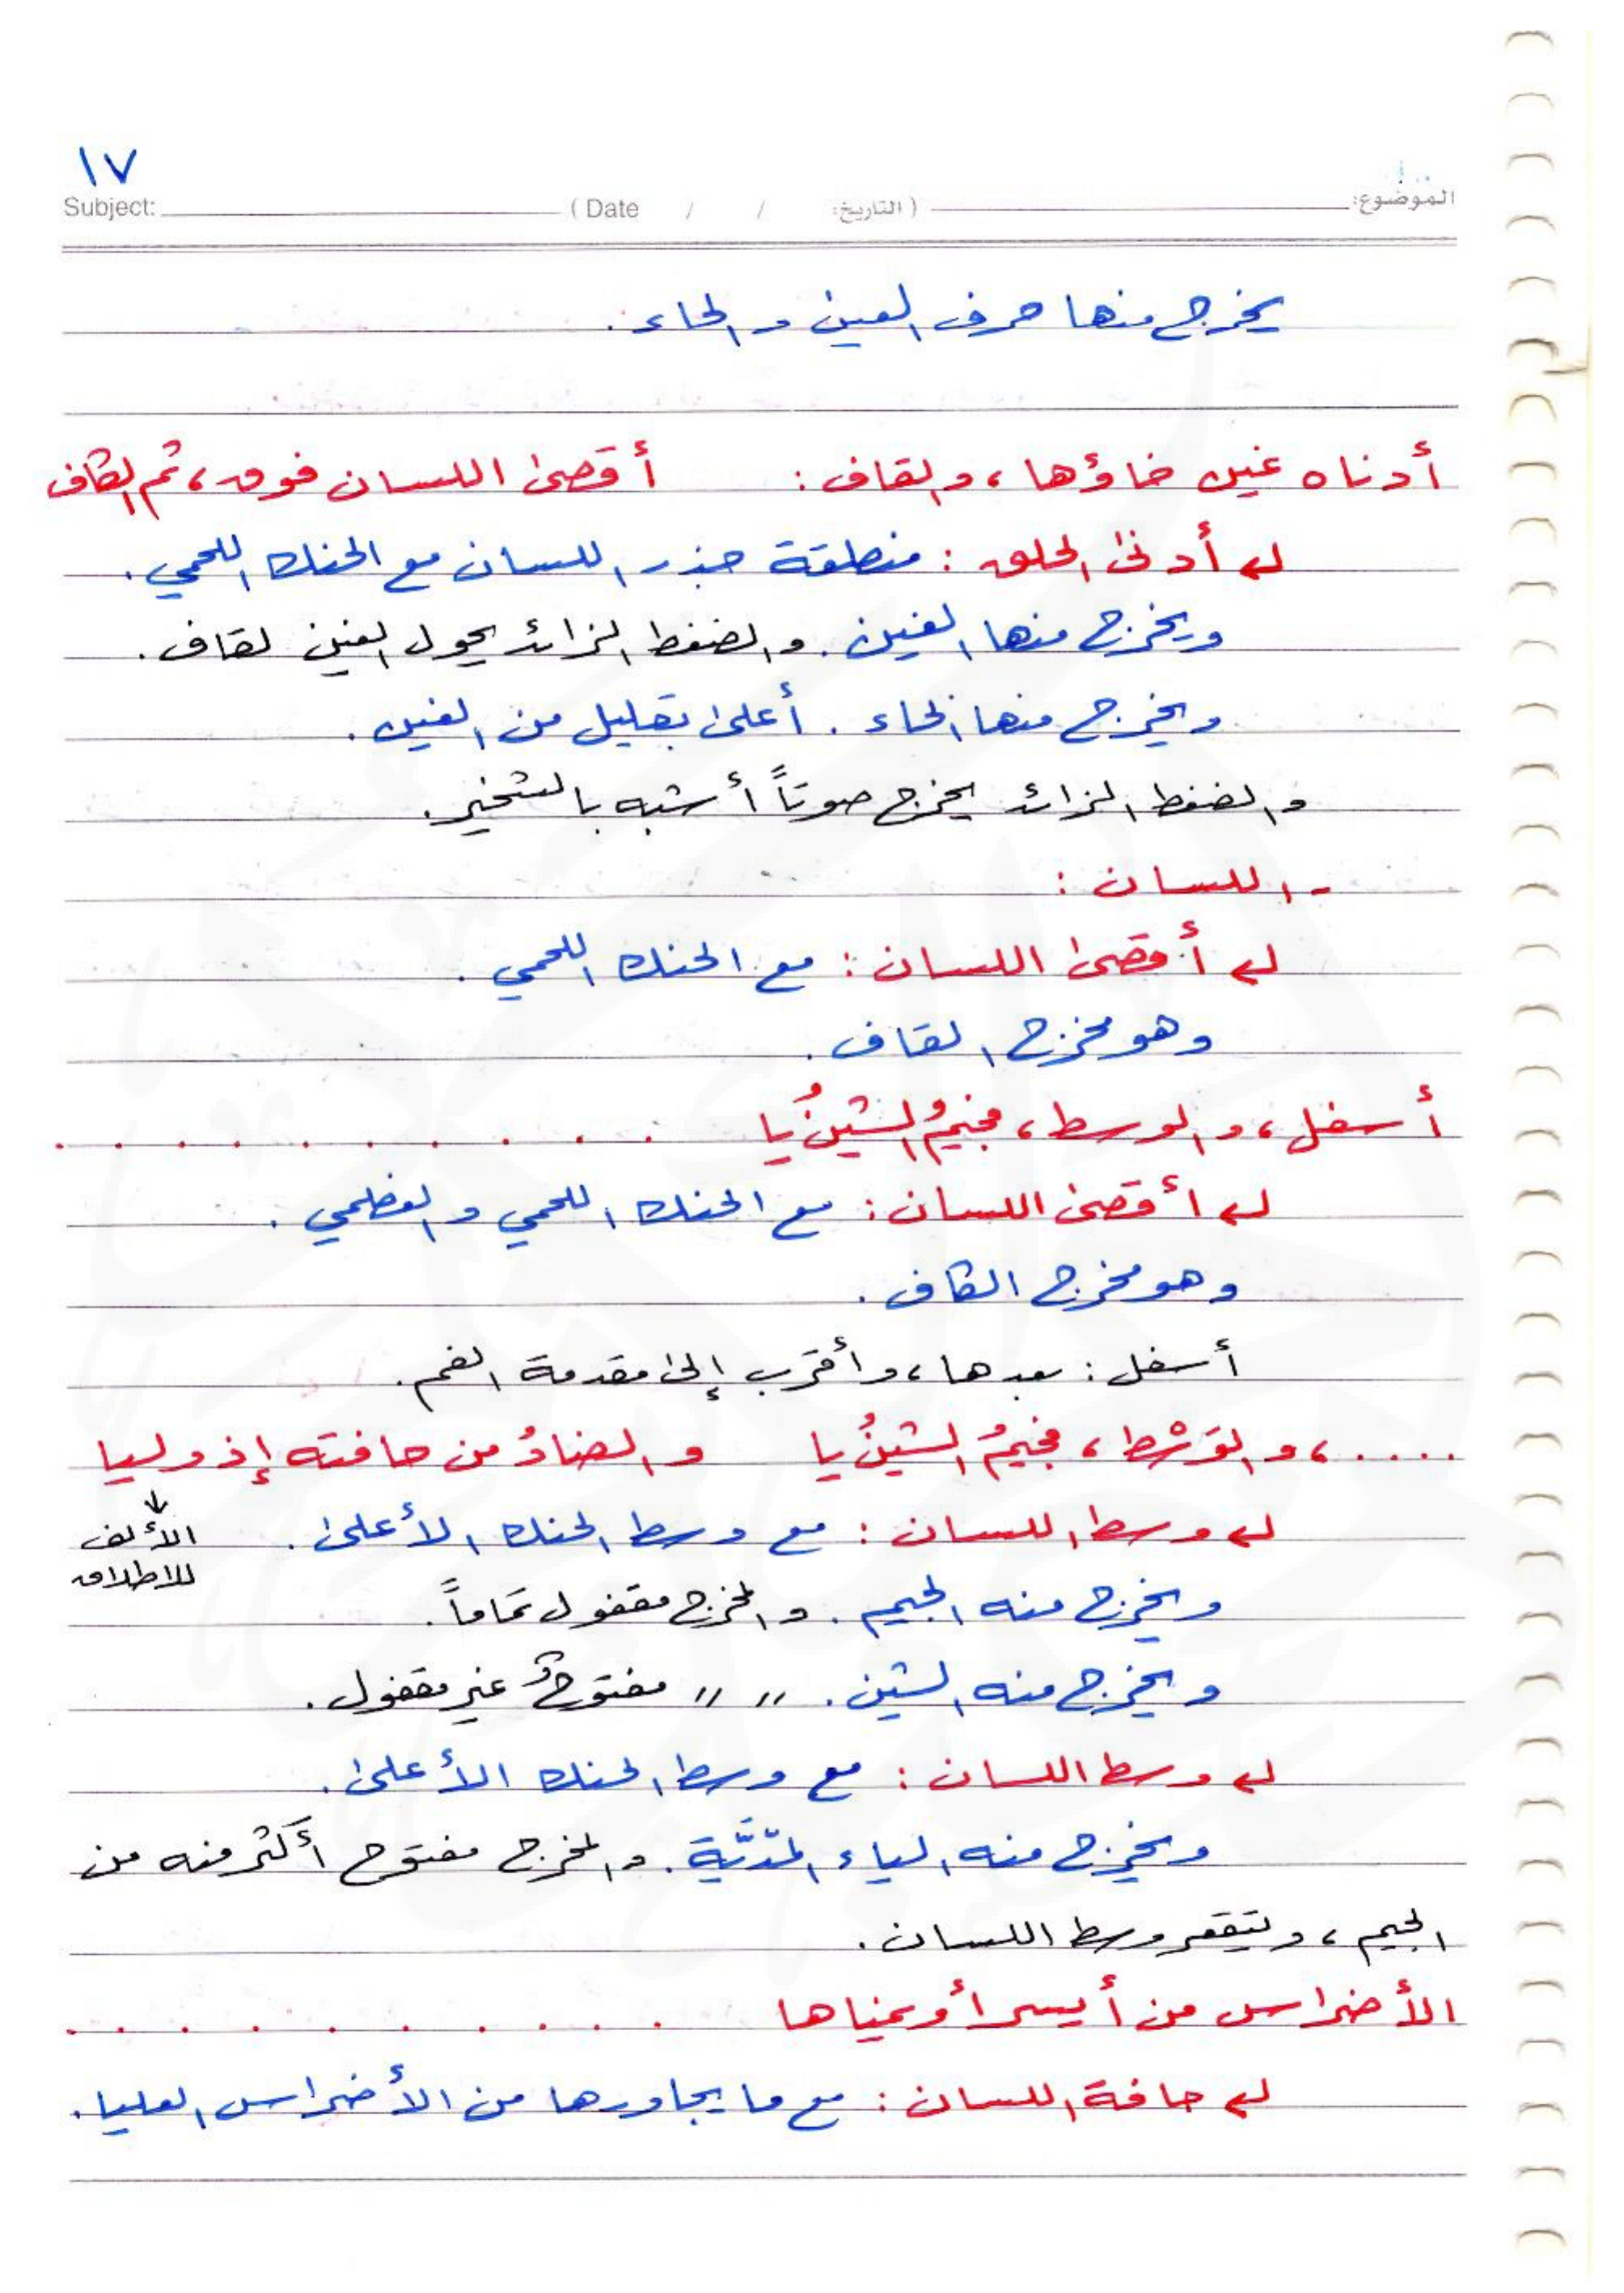 ١٧
Subject: (Date / / التاريخ:) الموضوع:
يخرج منها حرف العين والحاء.
أدناه غين خاؤها، والقاف: أقصى اللسان فوق، ثم الكاف
أدنى الحلق: منطقة جذر اللسان مع الحنك اللحمي.
ويخرج منها الغين. والضغط الزائد يحول الغين لقاف.
ويخرج منها الخاء. أعلى بقليل من الغين.
والضغط الزائد يخرج صوتاً أشبه بالشخير.
- اللسان:
أقصى اللسان: مع الحنك اللحمي.
وهو مخرج القاف.
أسفل، والوسط، فجيمُ الشينُ يا . . . . . . . . . .
أقصى اللسان: مع الحنك اللحمي والعظمي.
وهو مخرج الكاف.
أسفل: بعدها، وأقرب إلى مقدمة الفم.
.....، والوَسْط، فجيمُ الشينُ يا والضادُ من حافته إذ وليا
وسط اللسان: مع وسط الحنك الأعلى. ↓ الألف
للاطلاق
ويخرج منه الجيم. والمخرج مقفول تماماً.
ويخرج منه الشين. 〃 〃 مفتوحٌ غير مقفول.
وسط اللسان: مع وسط الحنك الأعلى.
ويخرج منه الياء المدّيَّة. والمخرج مفتوح أكثر منه من
الجيم، ويتقعر وسط اللسان.
الأضراس من أيسر أو يمناها . . . . . . . . . .
حافة اللسان: مع ما يجاورها من الأضراس العليا.